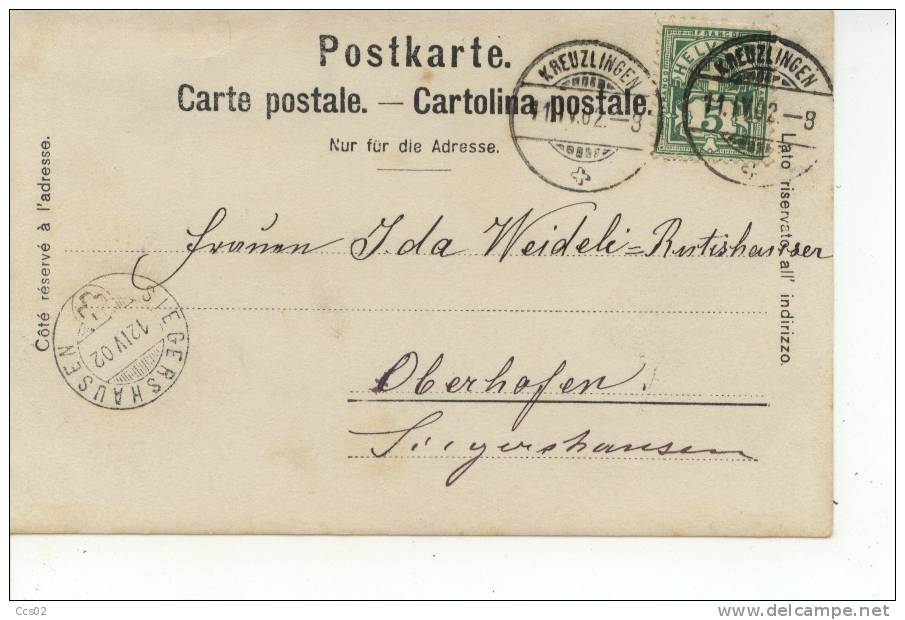 Postkarte.
Carte postale. — Cartolina postale.
Nur für die Adresse.
Côté réservé à l'adresse.
Lato riservato all' indirizzo.
KREUZLINGEN
11.IV.02.—8
FRANCO
HELV
5
KREUZLINGEN
11.IV.02.—8
Frauen Ida Weideli=Rutishauser
SIEGERSHAUSEN
12 IV 02
Oberhofen.
Siegershausen
Ccs02
www.delcampe.net